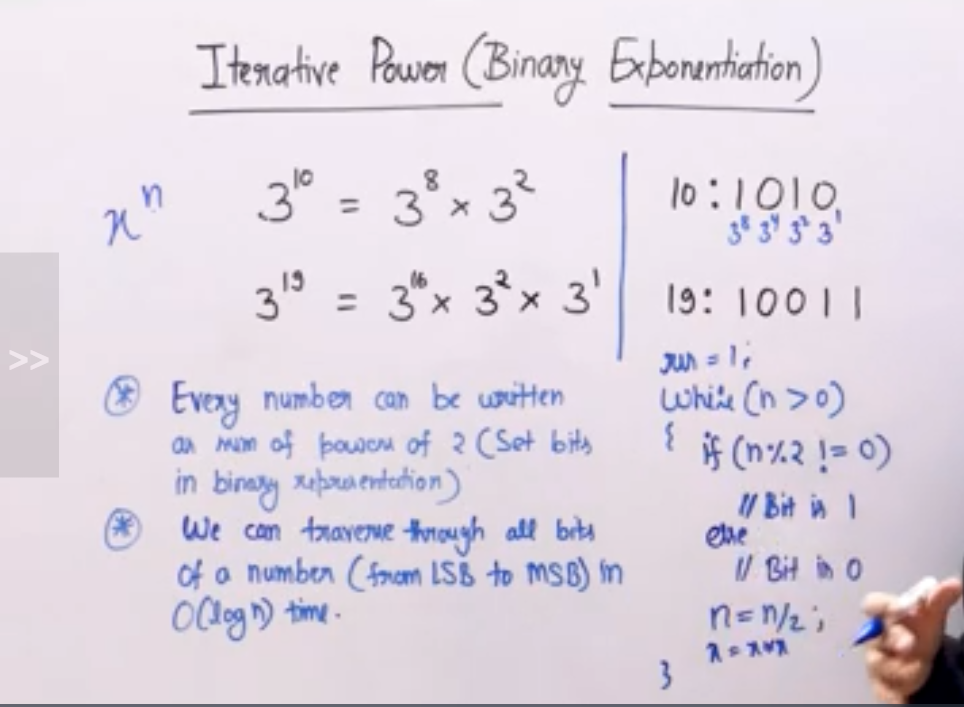 Iterative Power (Binary Exponentiation)
xⁿ
3¹⁰ = 3⁸ × 3²
3¹⁹ = 3¹⁶ × 3² × 3¹
* Every number can be written
as sum of powers of 2 (Set bits
in binary representation)
* We can traverse through all bits
of a number (from LSB to MSB) in
O(log n) time.
10: 1010
3⁸ 3⁴ 3² 3¹
19: 10011
res = 1;
while (n > 0)
{ if (n%2 != 0)
// Bit is 1
else
// Bit is 0
n = n/2;
x = x*x
}
>>